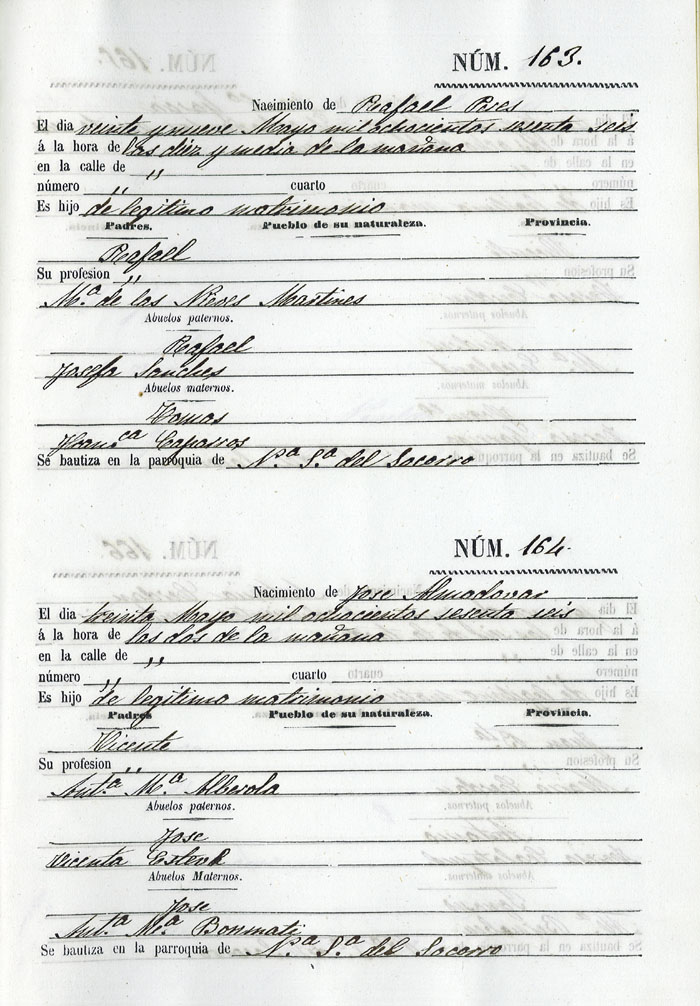 NÚM. 163.
Nacimiento de Rafael Pres
El dia veinte y nueve Mayo mil ochocientos sesenta seis
á la hora de las diéz y media de la mañana
en la calle de "
número " cuarto
Es hijo de legitimo matrimonio
Padres. Pueblo de su naturaleza. Provincia.
Rafael
Su profesion "
Mª de las Nieves Martines
Abuelos paternos.
Rafael
Josefa Sanches
Abuelos maternos.
Tomas
Franca
Se bautiza en la parroquia de Nª Sª del Socorro
NÚM. 164.
Nacimiento de Jose Almadovar
El dia treinta Mayo mil ochocientos sesenta seis
á la hora de las dos de la mañana
en la calle de "
número " cuarto
Es hijo de legitimo matrimonio
Padres Pueblo de su naturaleza. Provincia.
Vicente
Su profesion "
Antª Mª Alberola
Abuelos paternos.
Jose
Vicenta
Abuelos Maternos.
Jose
Antª Mª Bonmati
Se bautiza en la parroquia de Nª Sª del Socorro